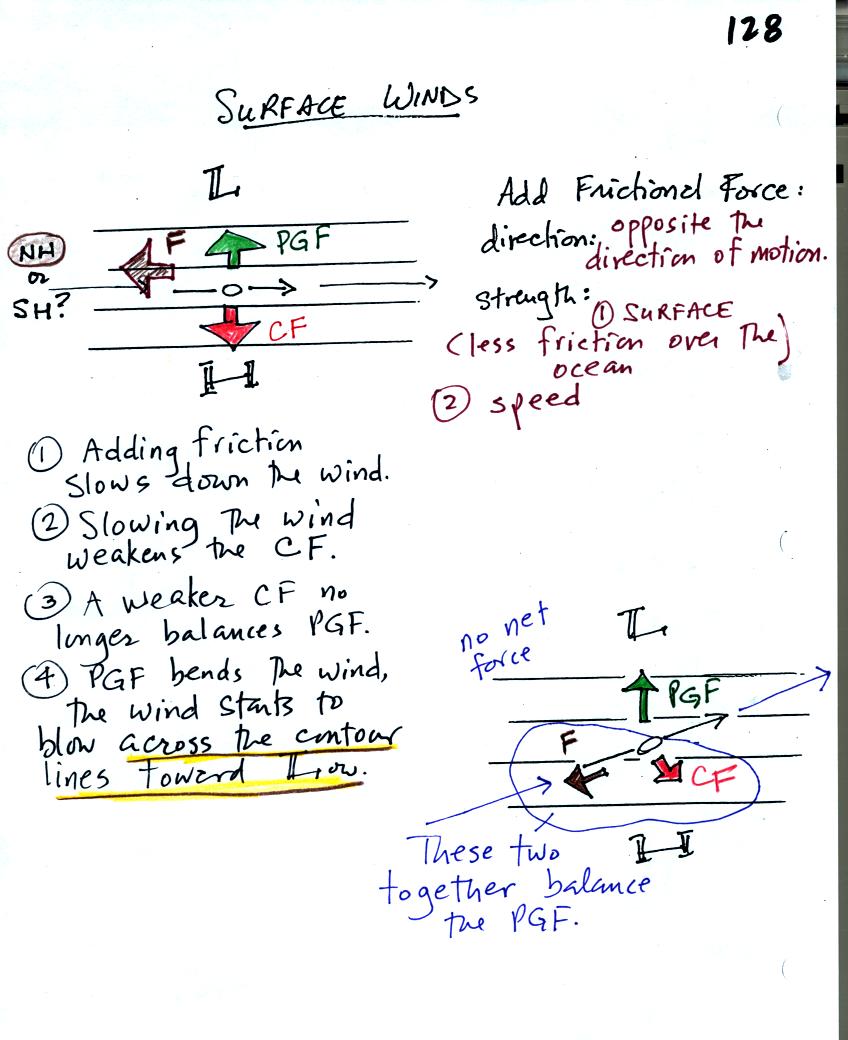 128
SURFACE WINDS
L
F
PGF
NH
or
SH?
CF
H
Add Frictional Force:
direction: opposite the
direction of motion.
strength:
① SURFACE
(less friction over the)
ocean
② speed
① Adding friction
slows down the wind.
② Slowing the wind
weakens the CF.
③ A weaker CF no
longer balances PGF.
④ PGF bends the wind,
the wind starts to
blow across the contour
lines toward Low.
no net
force
L
PGF
F
CF
H
These two
together balance
the PGF.